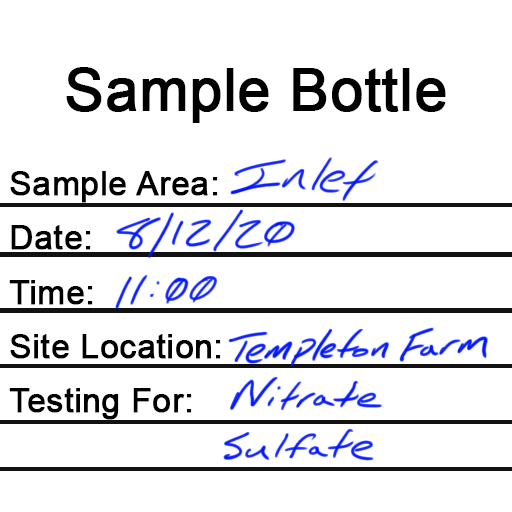 Sample Bottle
Sample Area: Inlet
Date: 8/12/20
Time: 11:00
Site Location: Templeton Farm
Testing For: Nitrate
Sulfate